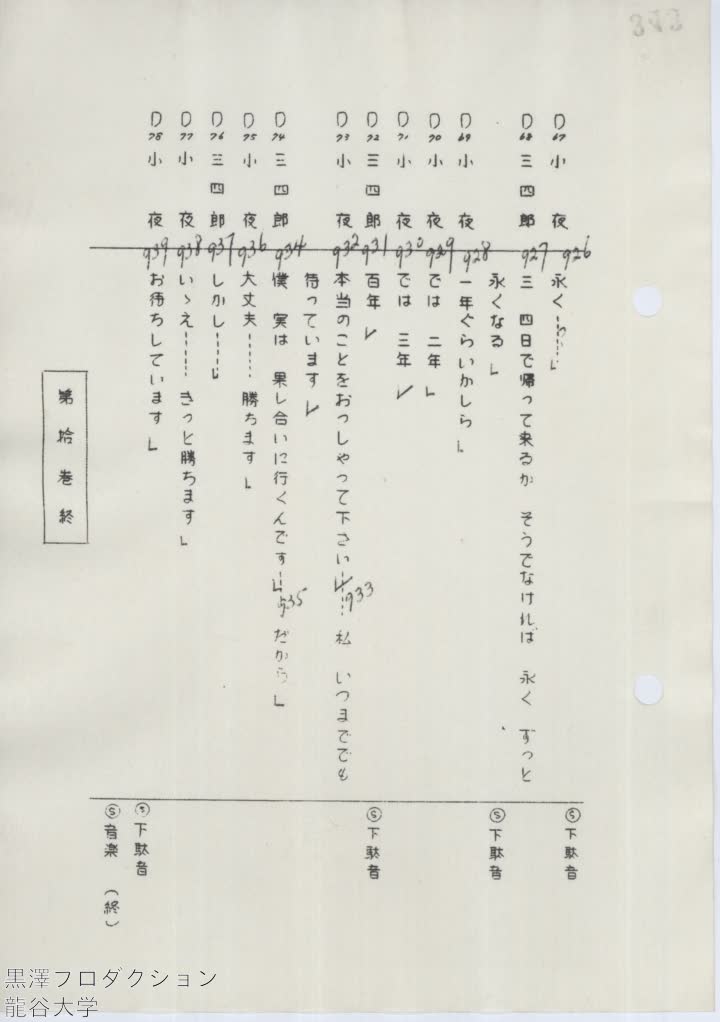 D67 小夜 926 永く……」 Ⓢ下駄音
D68 三四郎 927 三 四日で帰って来るか そうでなければ 永く ずっと
永くなる」 Ⓢ下駄音
D69 小夜 928 一年ぐらいかしら」
D70 小夜 929 では 二年」
D71 小夜 930 では 三年」
D72 三四郎 931 百年」 Ⓢ下駄音
D73 小夜 932 本当のことをおっしゃって下さい……933 私 いつまででも
待っています」
D74 三四郎 934 僕 実は 果し合いに行くんです……935 だから」
D75 小夜 936 大丈夫…… 勝ちます」
D76 三四郎 937 しかし……」
D77 小夜 938 いゝえ…… きっと勝ちます」
D78 小夜 939 お待ちしています」 Ⓢ下駄音
Ⓢ音楽 (終)
第拾巻終
黒澤フロダクション
龍谷大学